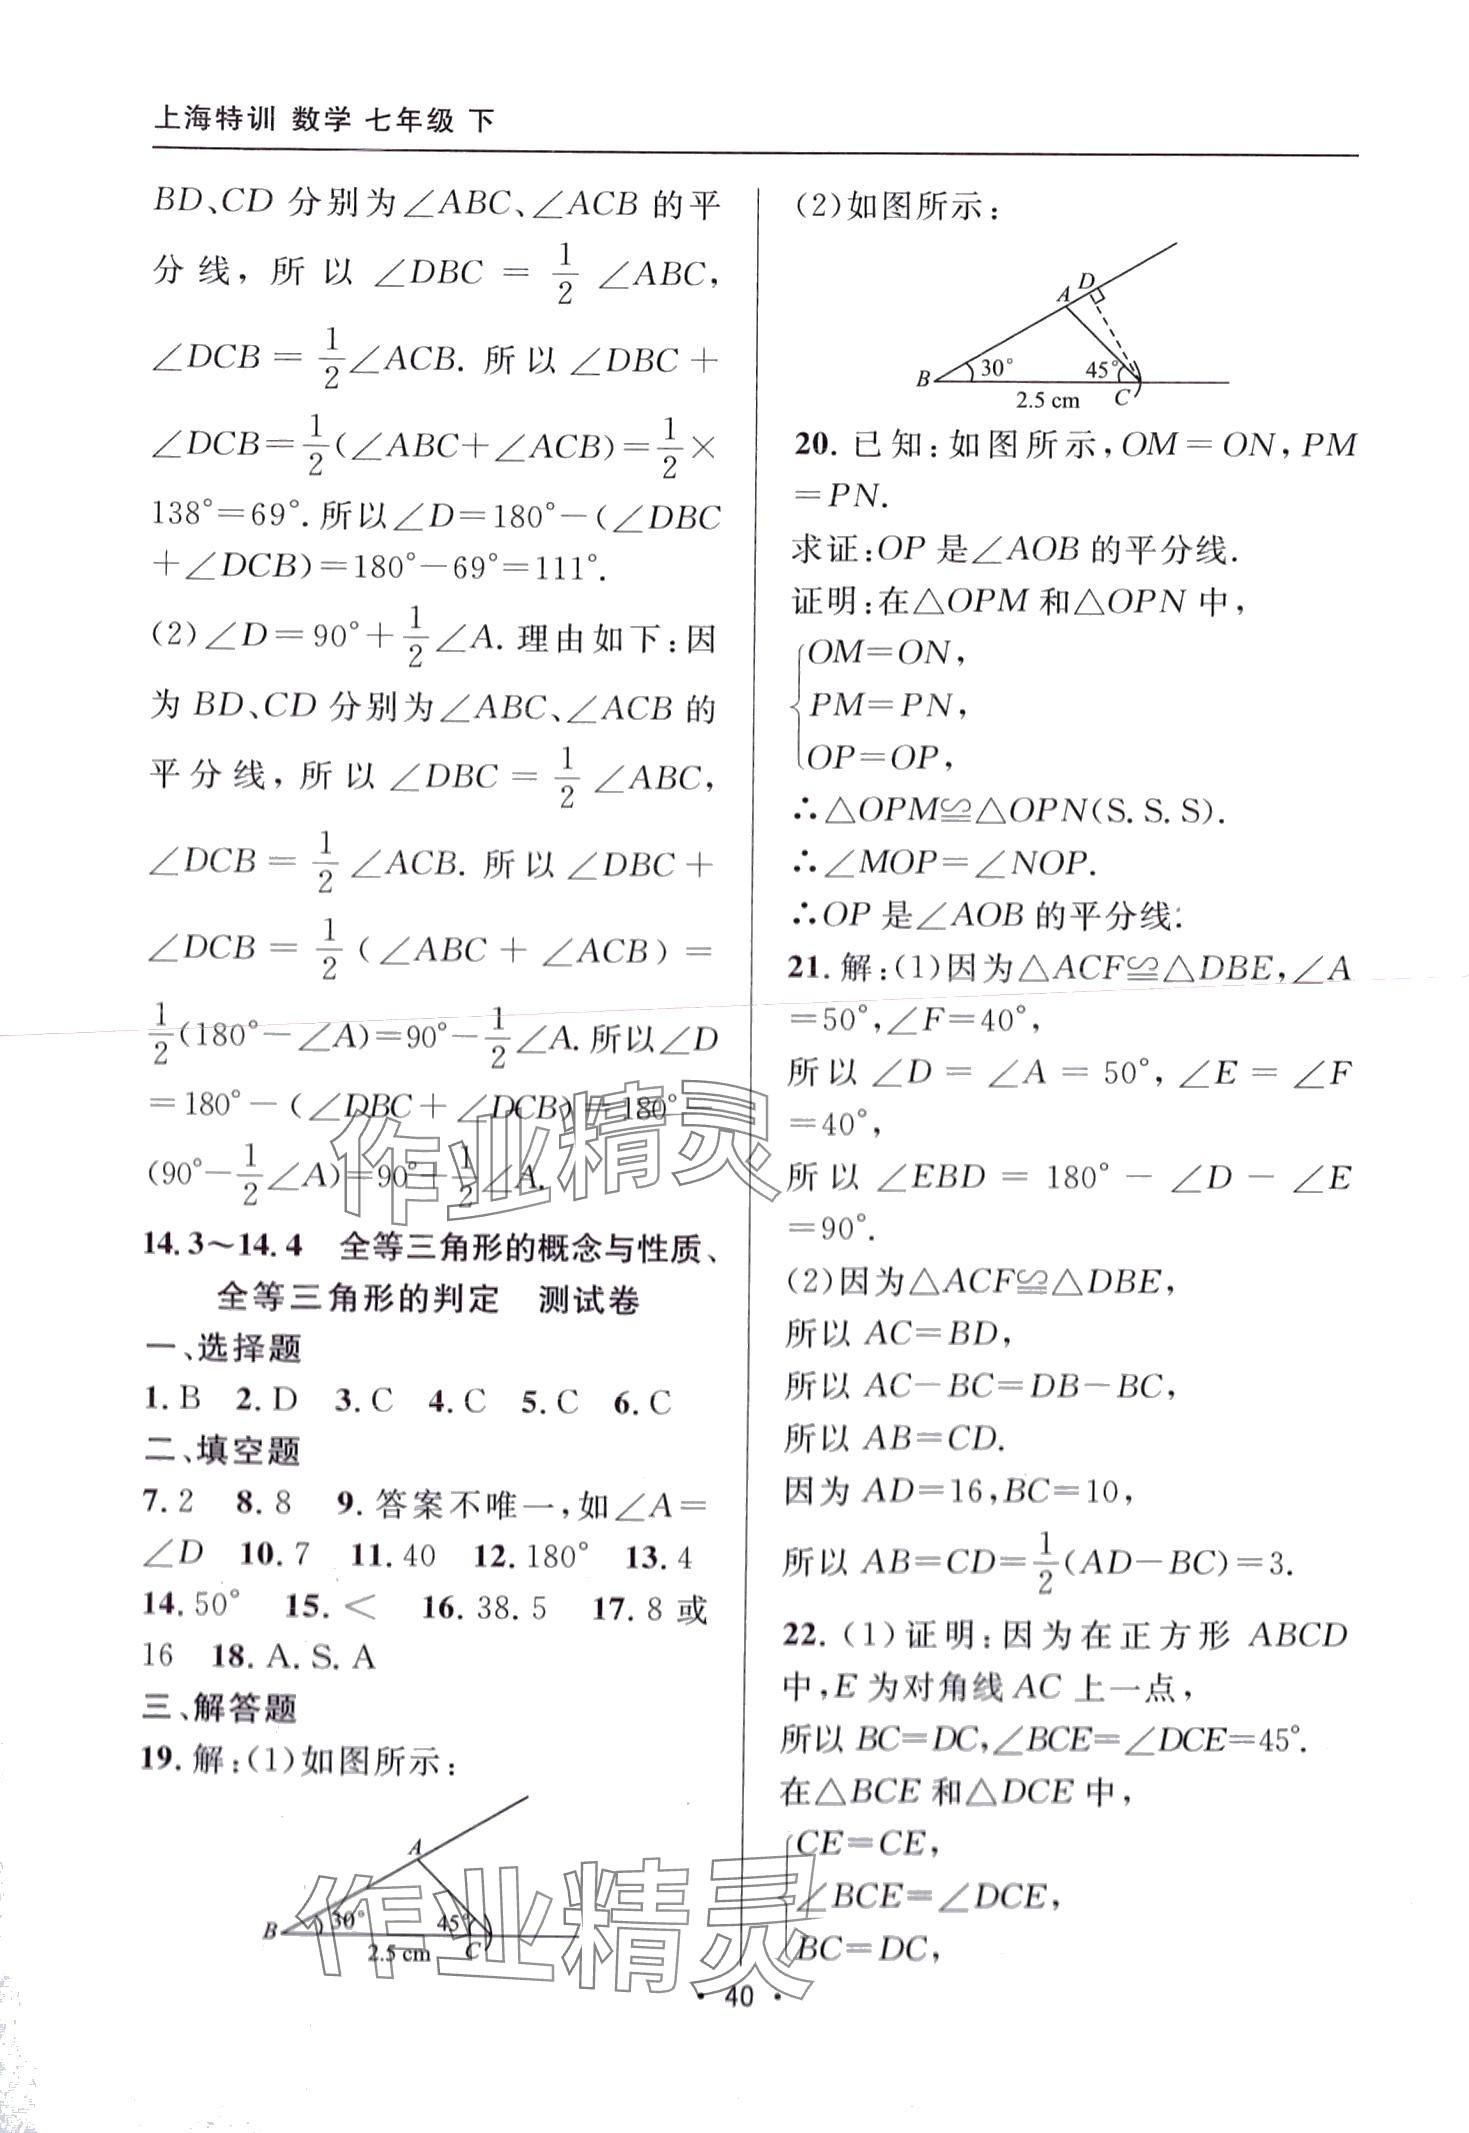 上海特训 数学 七年级 下
BD、CD 分别为∠ABC、∠ACB 的平
分线，所以 ∠DBC = 1/2 ∠ABC,
∠DCB = 1/2∠ACB. 所以 ∠DBC +
∠DCB=1/2(∠ABC+∠ACB)=1/2×
138°=69°.所以∠D=180°-(∠DBC
+∠DCB)=180°-69°=111°.
(2)∠D=90°+1/2∠A.理由如下:因
为 BD、CD 分别为∠ABC、∠ACB 的
平分线，所以 ∠DBC = 1/2 ∠ABC,
∠DCB = 1/2 ∠ACB. 所以 ∠DBC +
∠DCB = 1/2 (∠ABC + ∠ACB) =
1/2(180°-∠A)=90°-1/2∠A.所以∠D
=180°-(∠DBC+∠DCB)=180°-
(90°-1/2∠A)=90°+1/2∠A.
14.3～14.4 全等三角形的概念与性质、
全等三角形的判定 测试卷
一、选择题
1.B 2.D 3.C 4.C 5.C 6.C
二、填空题
7.2 8.8 9.答案不唯一,如∠A=
∠D 10.7 11.40 12.180° 13.4
14.50° 15.< 16.38.5 17.8 或
16 18.A.S.A
三、解答题
19.解:(1)如图所示:
A
B 30° 45° C
2.5 cm
(2)如图所示:
A D
B 30° 45° C
2.5 cm
20.已知:如图所示,OM=ON,PM
=PN.
求证:OP 是∠AOB 的平分线.
证明:在△OPM 和△OPN 中,
OM=ON,
PM=PN,
OP=OP,
∴△OPM≌△OPN(S.S.S).
∴∠MOP=∠NOP.
∴OP 是∠AOB 的平分线.
21.解:(1)因为△ACF≌△DBE,∠A
=50°,∠F=40°,
所以 ∠D = ∠A = 50°, ∠E = ∠F
=40°,
所以 ∠EBD = 180° - ∠D - ∠E
=90°.
(2)因为△ACF≌△DBE,
所以 AC=BD,
所以 AC-BC=DB-BC,
所以 AB=CD.
因为 AD=16,BC=10,
所以 AB=CD=1/2(AD-BC)=3.
22.(1)证明:因为在正方形 ABCD
中,E 为对角线 AC 上一点,
所以 BC=DC,∠BCE=∠DCE=45°.
在△BCE 和△DCE 中,
CE=CE,
∠BCE=∠DCE,
BC=DC,
· 40 ·
作业精灵
作业精灵